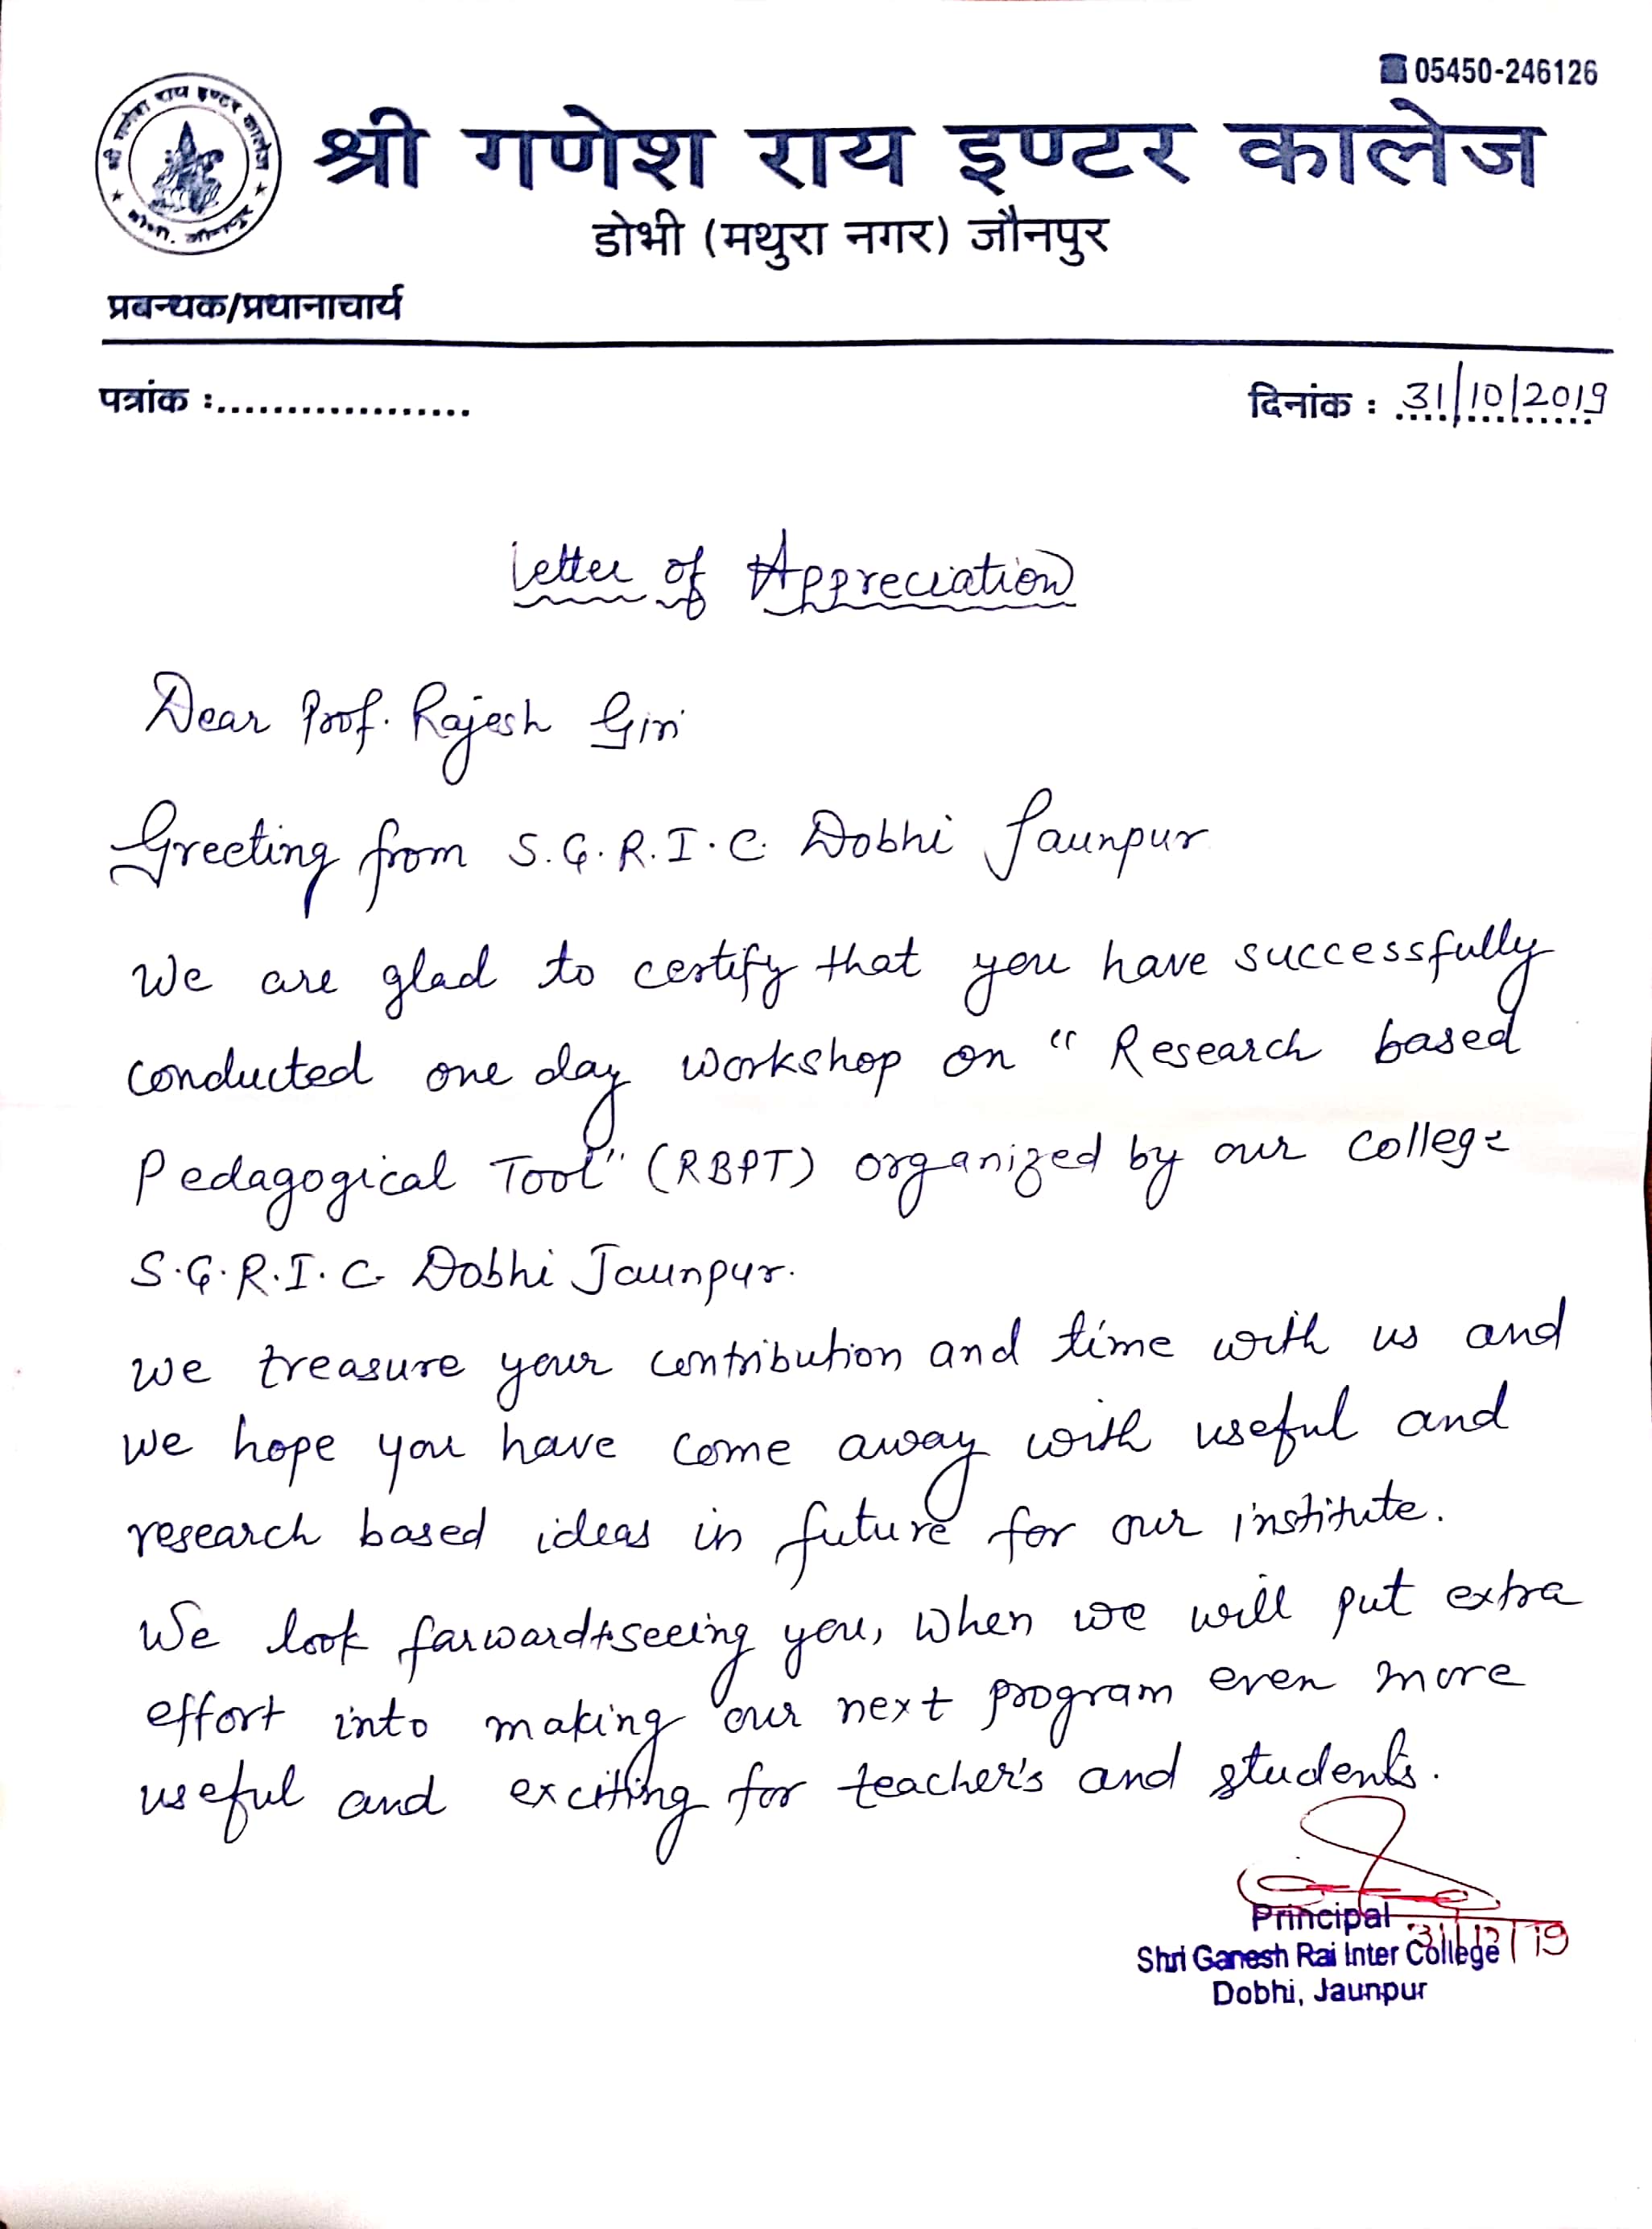 05450-246126
श्री गणेश राय इण्टर कालेज
श्री गणेश राय इण्टर कालेज
डोभी, जौनपुर
डोभी (मथुरा नगर) जौनपुर
प्रबन्धक/प्रधानाचार्य
पत्रांक :..................
दिनांक : 31/10/2019
Letter of Appreciation
Dear Prof. Rajesh Giri
Greeting from S.G.R.I.C. Dobhi Jaunpur
We are glad to certify that you have successfully
conducted one day workshop on " Research based
Pedagogical Tool" (RBPT) organized by our college
S.G.R.I.C. Dobhi Jaunpur.
We treasure your contribution and time with us and
we hope you have come away with useful and
research based ideas in future for our institute.
We look farward seeing you, when we will put extra
effort into making our next program even more
useful and exciting for teacher's and students.
Principal
31/10/19
Shri Ganesh Rai Inter College
Dobhi, Jaunpur